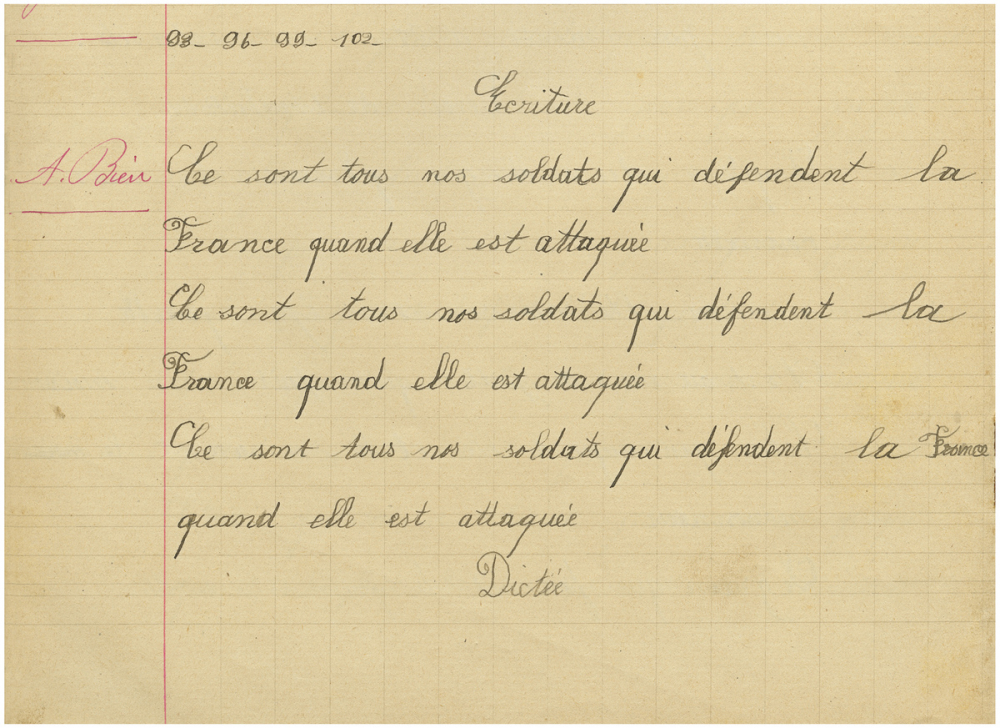 98- 96- 99- 102-
Ecriture
A. Bien
Ce sont tous nos soldats qui défendent la
France quand elle est attaquée
Ce sont tous nos soldats qui défendent la
France quand elle est attaquée
Ce sont tous nos soldats qui défendent la France
quand elle est attaquée
Dictée